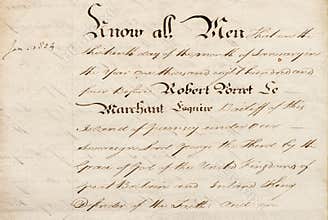 Jan. 1804
Know all Men that on the
thirteenth day of the month of January in
the Year one thousand eight hundred and
four Before Robert Porret Le
Marchant Esquire Bailiff of this
Island of Guernsey under our
Sovereign Lord George the Third by the
Grace of God of the United Kingdom of
Great Britain and Ireland King
Defender of the Faith and in